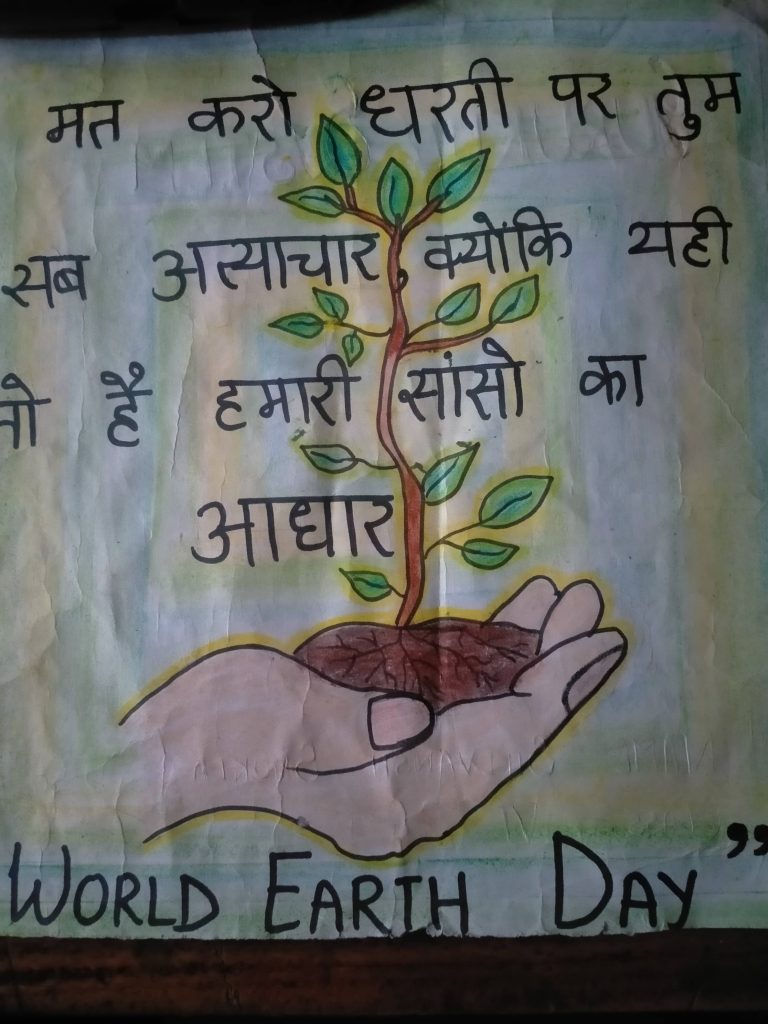 मत करो धरती पर तुम
सब अत्याचार, क्योंकि यही
तो है हमारी सांसो का
आधार
WORLD EARTH DAY”